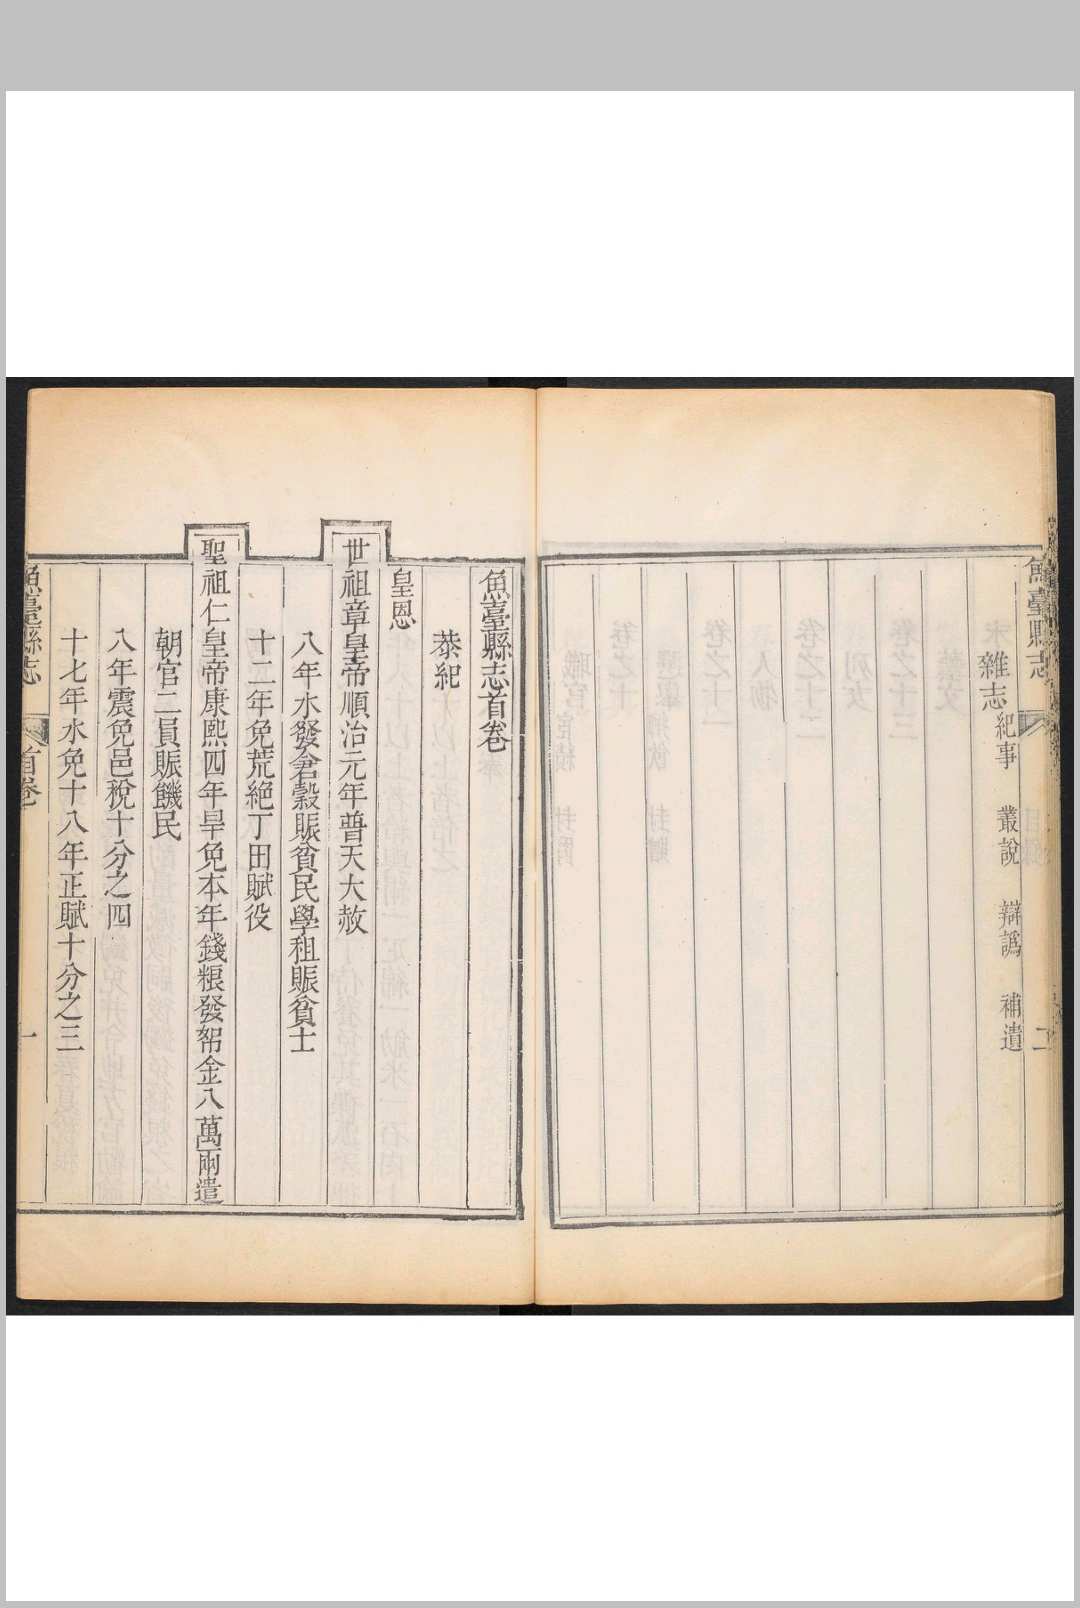 魚臺縣志
二
雜志 紀事 叢說 辯譌 補遺
魚臺縣志首卷
恭紀
皇恩
世祖章皇帝順治元年普天大赦
八年水發倉穀賑貧民學租賑貧士
十二年免荒絶丁田賦役
聖祖仁皇帝康熙四年旱免本年錢粮發帑金八萬兩遣
朝官二員賑饑民
八年震免邑稅十分之四
十七年水免十八年正賦十分之三
魚臺縣志
首卷
一